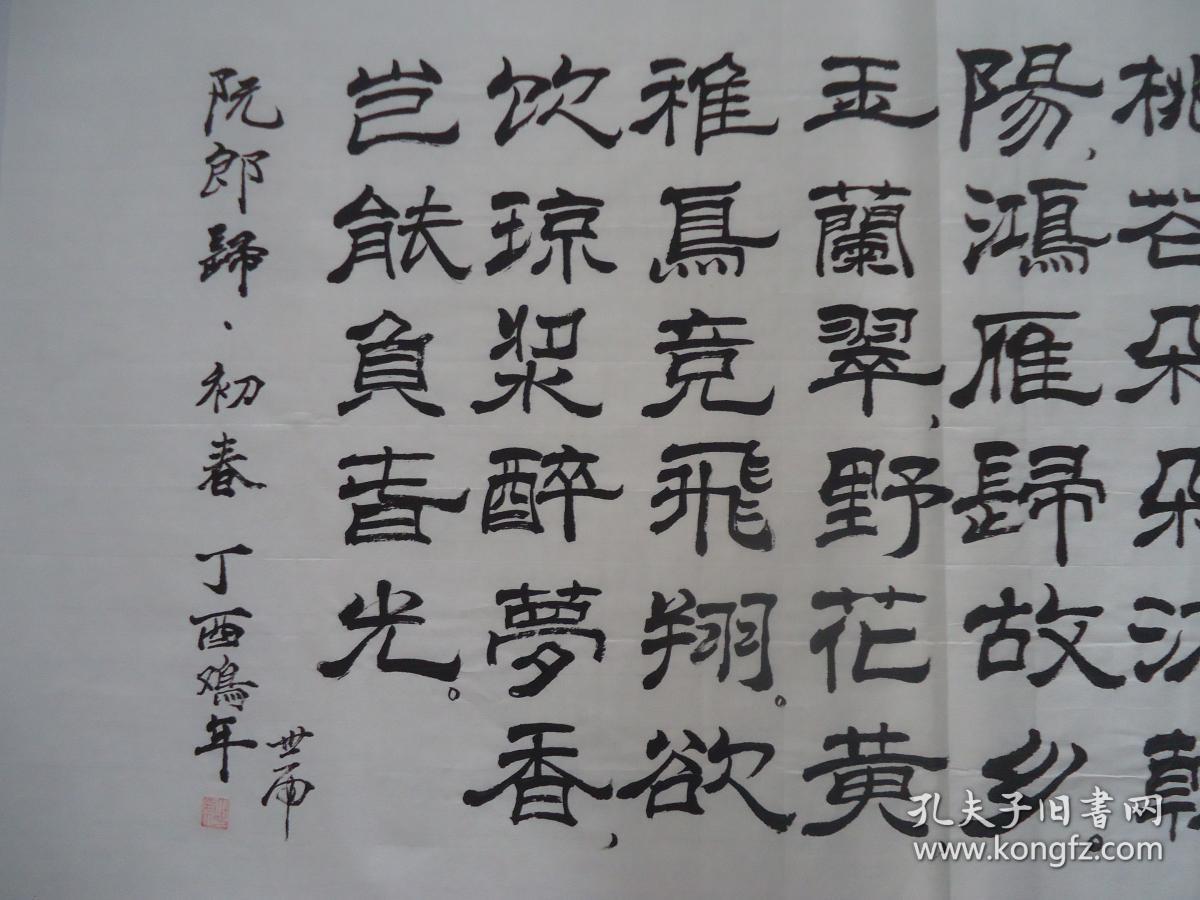 桃花朵朵沐朝
陽,鴻雁歸故乡。
玉蘭翠,野花黄,
稚鳥竞飛翔。欲
饮琼浆醉夢香,
岂能負春光。
阮郎歸·初春 丁酉鸡年
孔夫子旧书网
www.kongfz.com